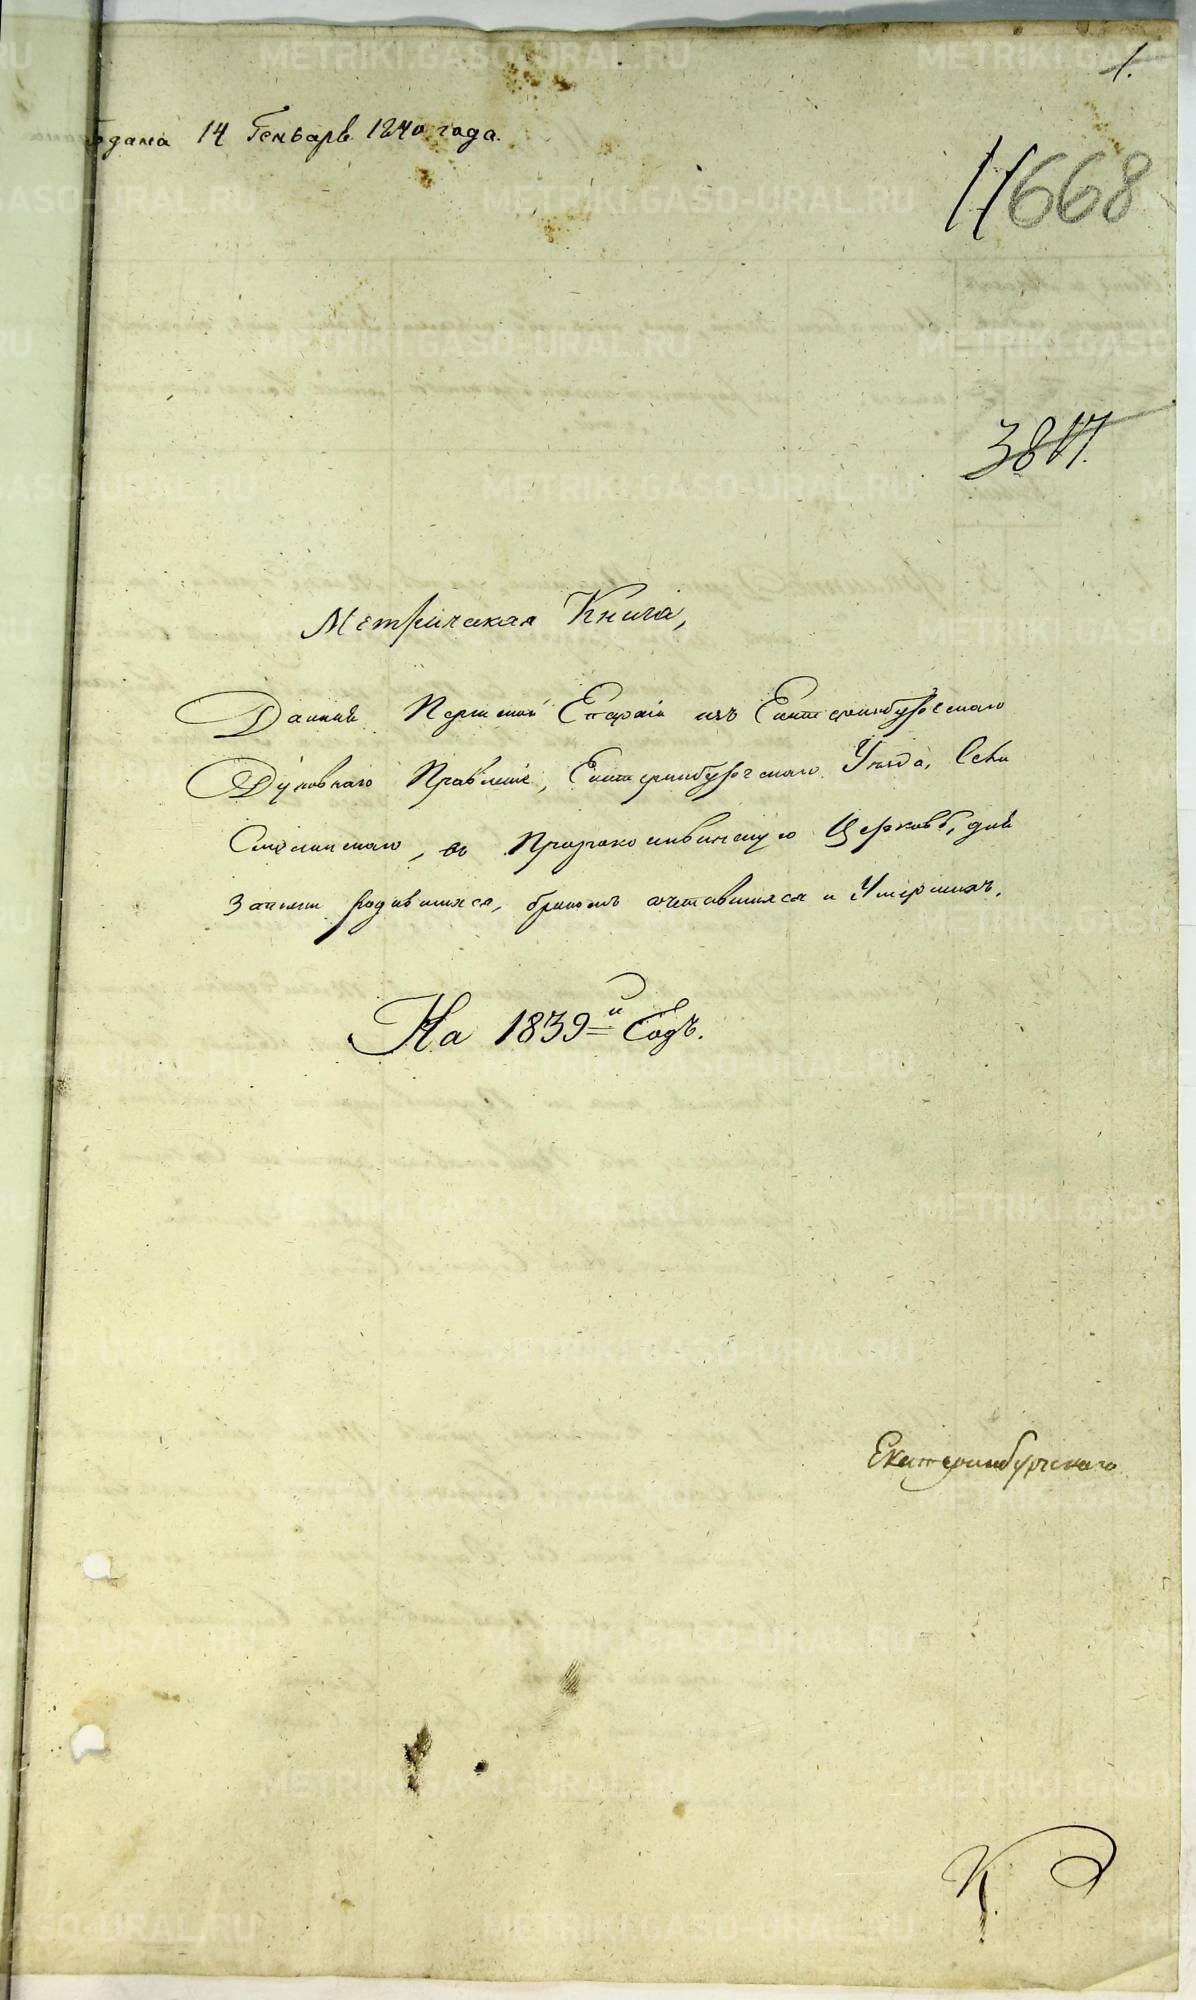 1.
дана 14 Генваря 1840 года.
11668
3817.
Метрическая Книга,
Данная Пермской Епархіи изъ Екатеринбургскаго
Духовнаго Правленія, Екатеринбургскаго Уезда, Села
Смолинскаго, въ Пророкоильинскую Церковь, для
записи родившихся, бракомъ сочетавшихся и Умершихъ.
На 1839-й Годъ.
Екатеринбургскаго